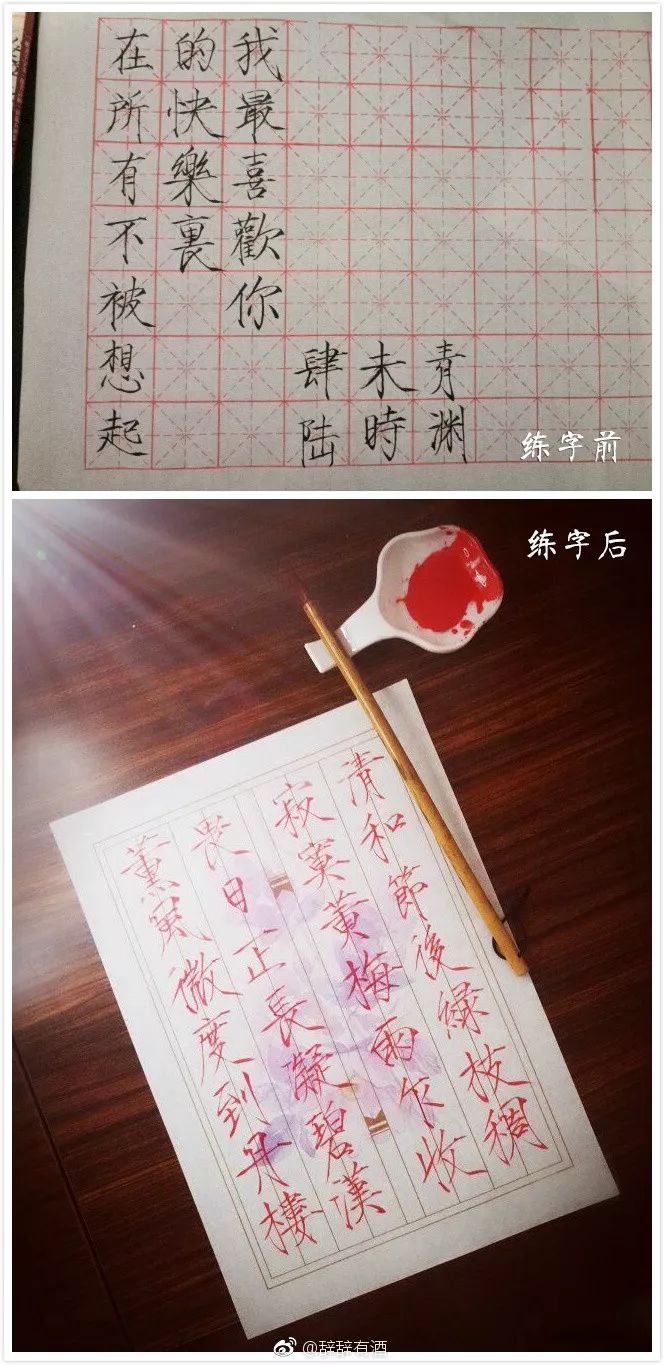 我最喜歡你
的快樂裏
在所有不被想起
青渊
未時
肆陆
练字前
练字后
清和節後緑枝稠
寂寞黄梅雨乍收
畏日正長凝碧漢
薰風微度到丹樓
@辞辞有酒